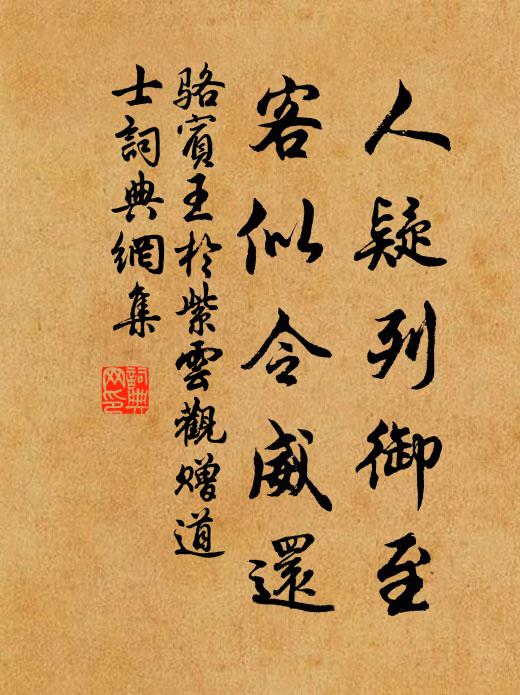 人疑列御至
客似令威還
駱賓王於紫雲觀贈道
士詞典網集
詞典
网印